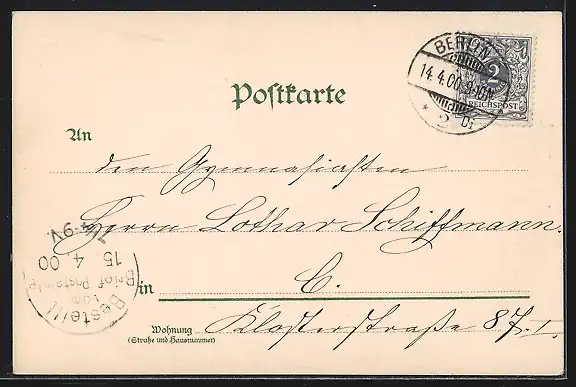 BERLIN
14.4.00.9-10N.
* 2 *
2
REICHSPOST
Postkarte
An
den Gymnasiasten
Herrn Lothar Schiffmann.
in C.
Wohnung Klosterstraße 87. I.
(Straße und Hausnummer)
Bestellt
vom
Brief Postamte
15 4 00